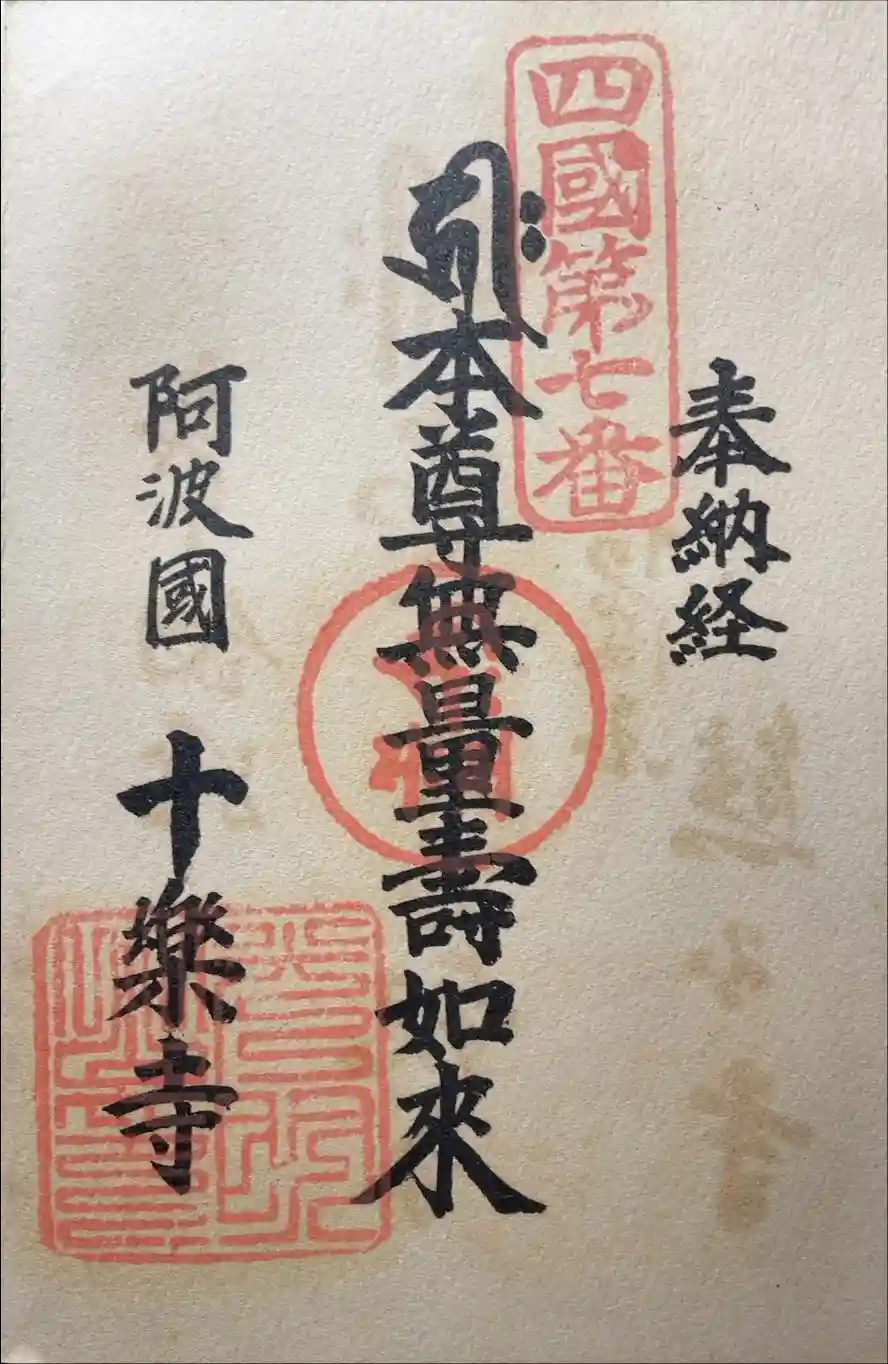 奉納経
四國第七番
本尊無量壽如來
阿波國 十樂寺